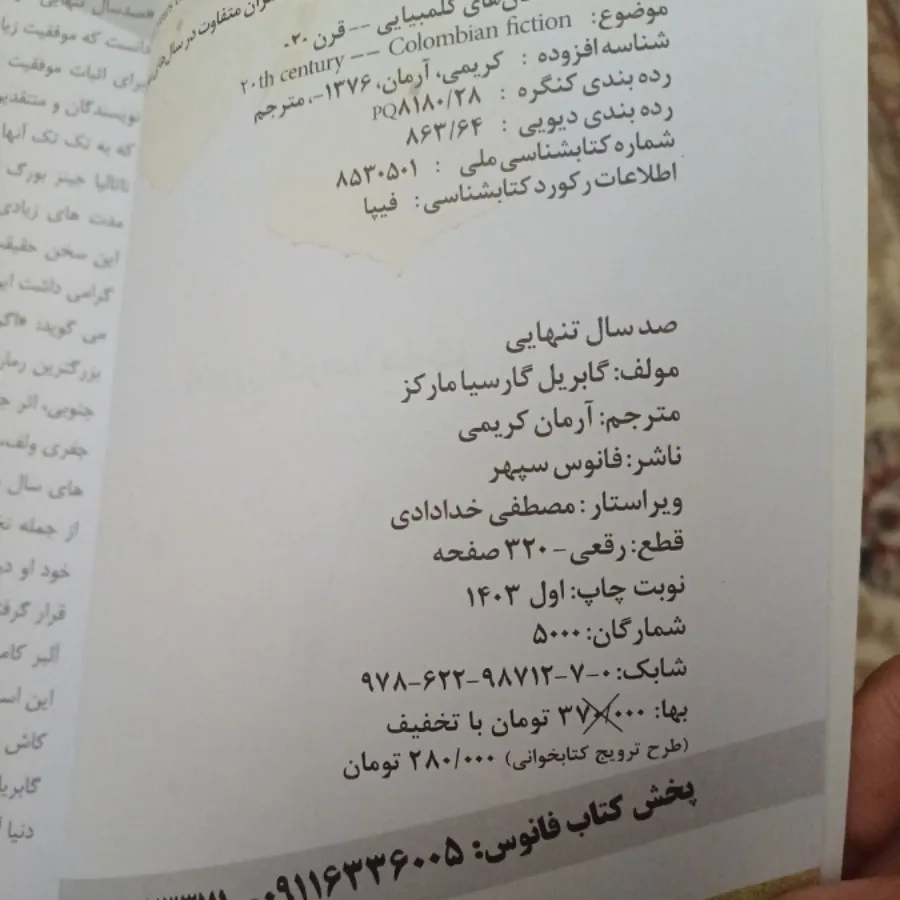 ان‌های کلمبیایی -- قرن ۲۰.
موضوع: Colombian fiction -- ۲۰th century
شناسه افزوده: کریمی، آرمان، ۱۳۷۶-، مترجم
رده بندی کنگره: PQ۸۱۸۰/۲۸
رده بندی دیویی: ۸۶۳/۶۴
شماره کتابشناسی ملی: ۸۵۳۰۵۰۱
اطلاعات رکورد کتابشناسی: فیپا
صد سال تنهایی
مولف: گابریل گارسیا مارکز
مترجم: آرمان کریمی
ناشر: فانوس سپهر
ویراستار: مصطفی خدادادی
قطع: رقعی - ۳۲۰ صفحه
نوبت چاپ: اول ۱۴۰۳
شمارگان: ۵۰۰۰
شابک: ۰-۷-۹۸۷۱۲-۶۲۲-۹۷۸
بها: ۳۷۰/۰۰۰ تومان با تخفیف
(طرح ترویج کتابخوانی) ۲۸۰/۰۰۰ تومان
پخش کتاب فانوس: ۰۹۱۱۶۳۳۶۰۰۵
دانست که موفقیت
برای اثبات موفقیت
نویسندگان و منتقدین
که به تک تک آنها
ناتالیا جینز بورگ
مدت های زیادی
این سخن حقیقت
گرامی داشت
می گوید: «اگر
بزرگترین رمان
جنوبی، اثر
جفری ولف
های سال
از جمله
خود او در
قرار گرفت
آلبر کامو
این
کاش
گابریل
دنیا